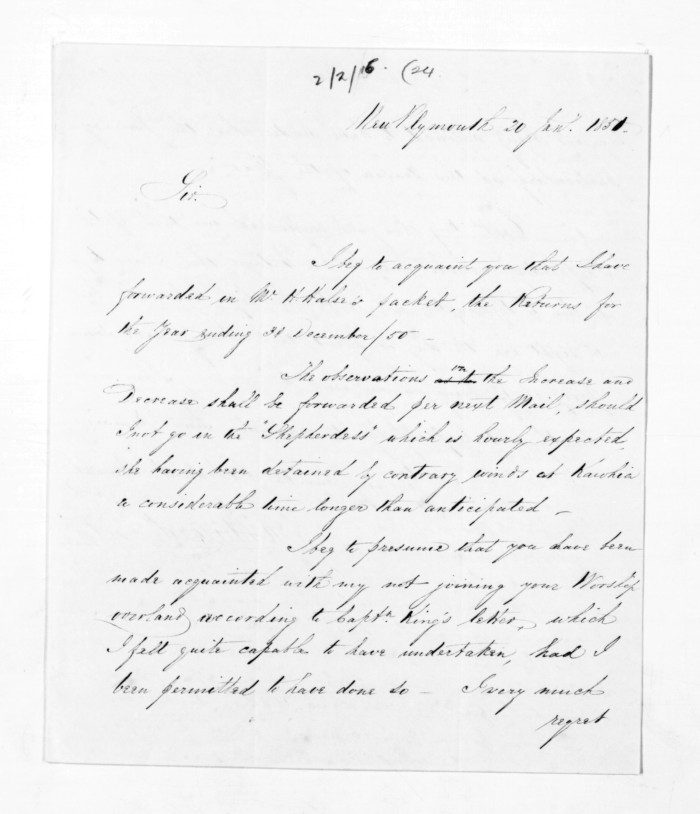 2/2/16. (24
New Plymouth 20 Jany. 1851.
Sir.
I beg to acquaint you that I have
forwarded in Mr. K. packet, the Returns for
the Year ending 31 December/50 —
The observations on the Increase and
Decrease shall be forwarded per next Mail, should
I not go in the "Shepherdess" which is hourly expected,
she having been detained by contrary winds at Kawhia
a considerable time longer than anticipated —
I beg to presume that you have been
made acquainted with my not joining your Worship
overland according to Captn. King's letter, which
I felt quite capable to have undertaken, had I
been permitted to have done so — I very much
regret